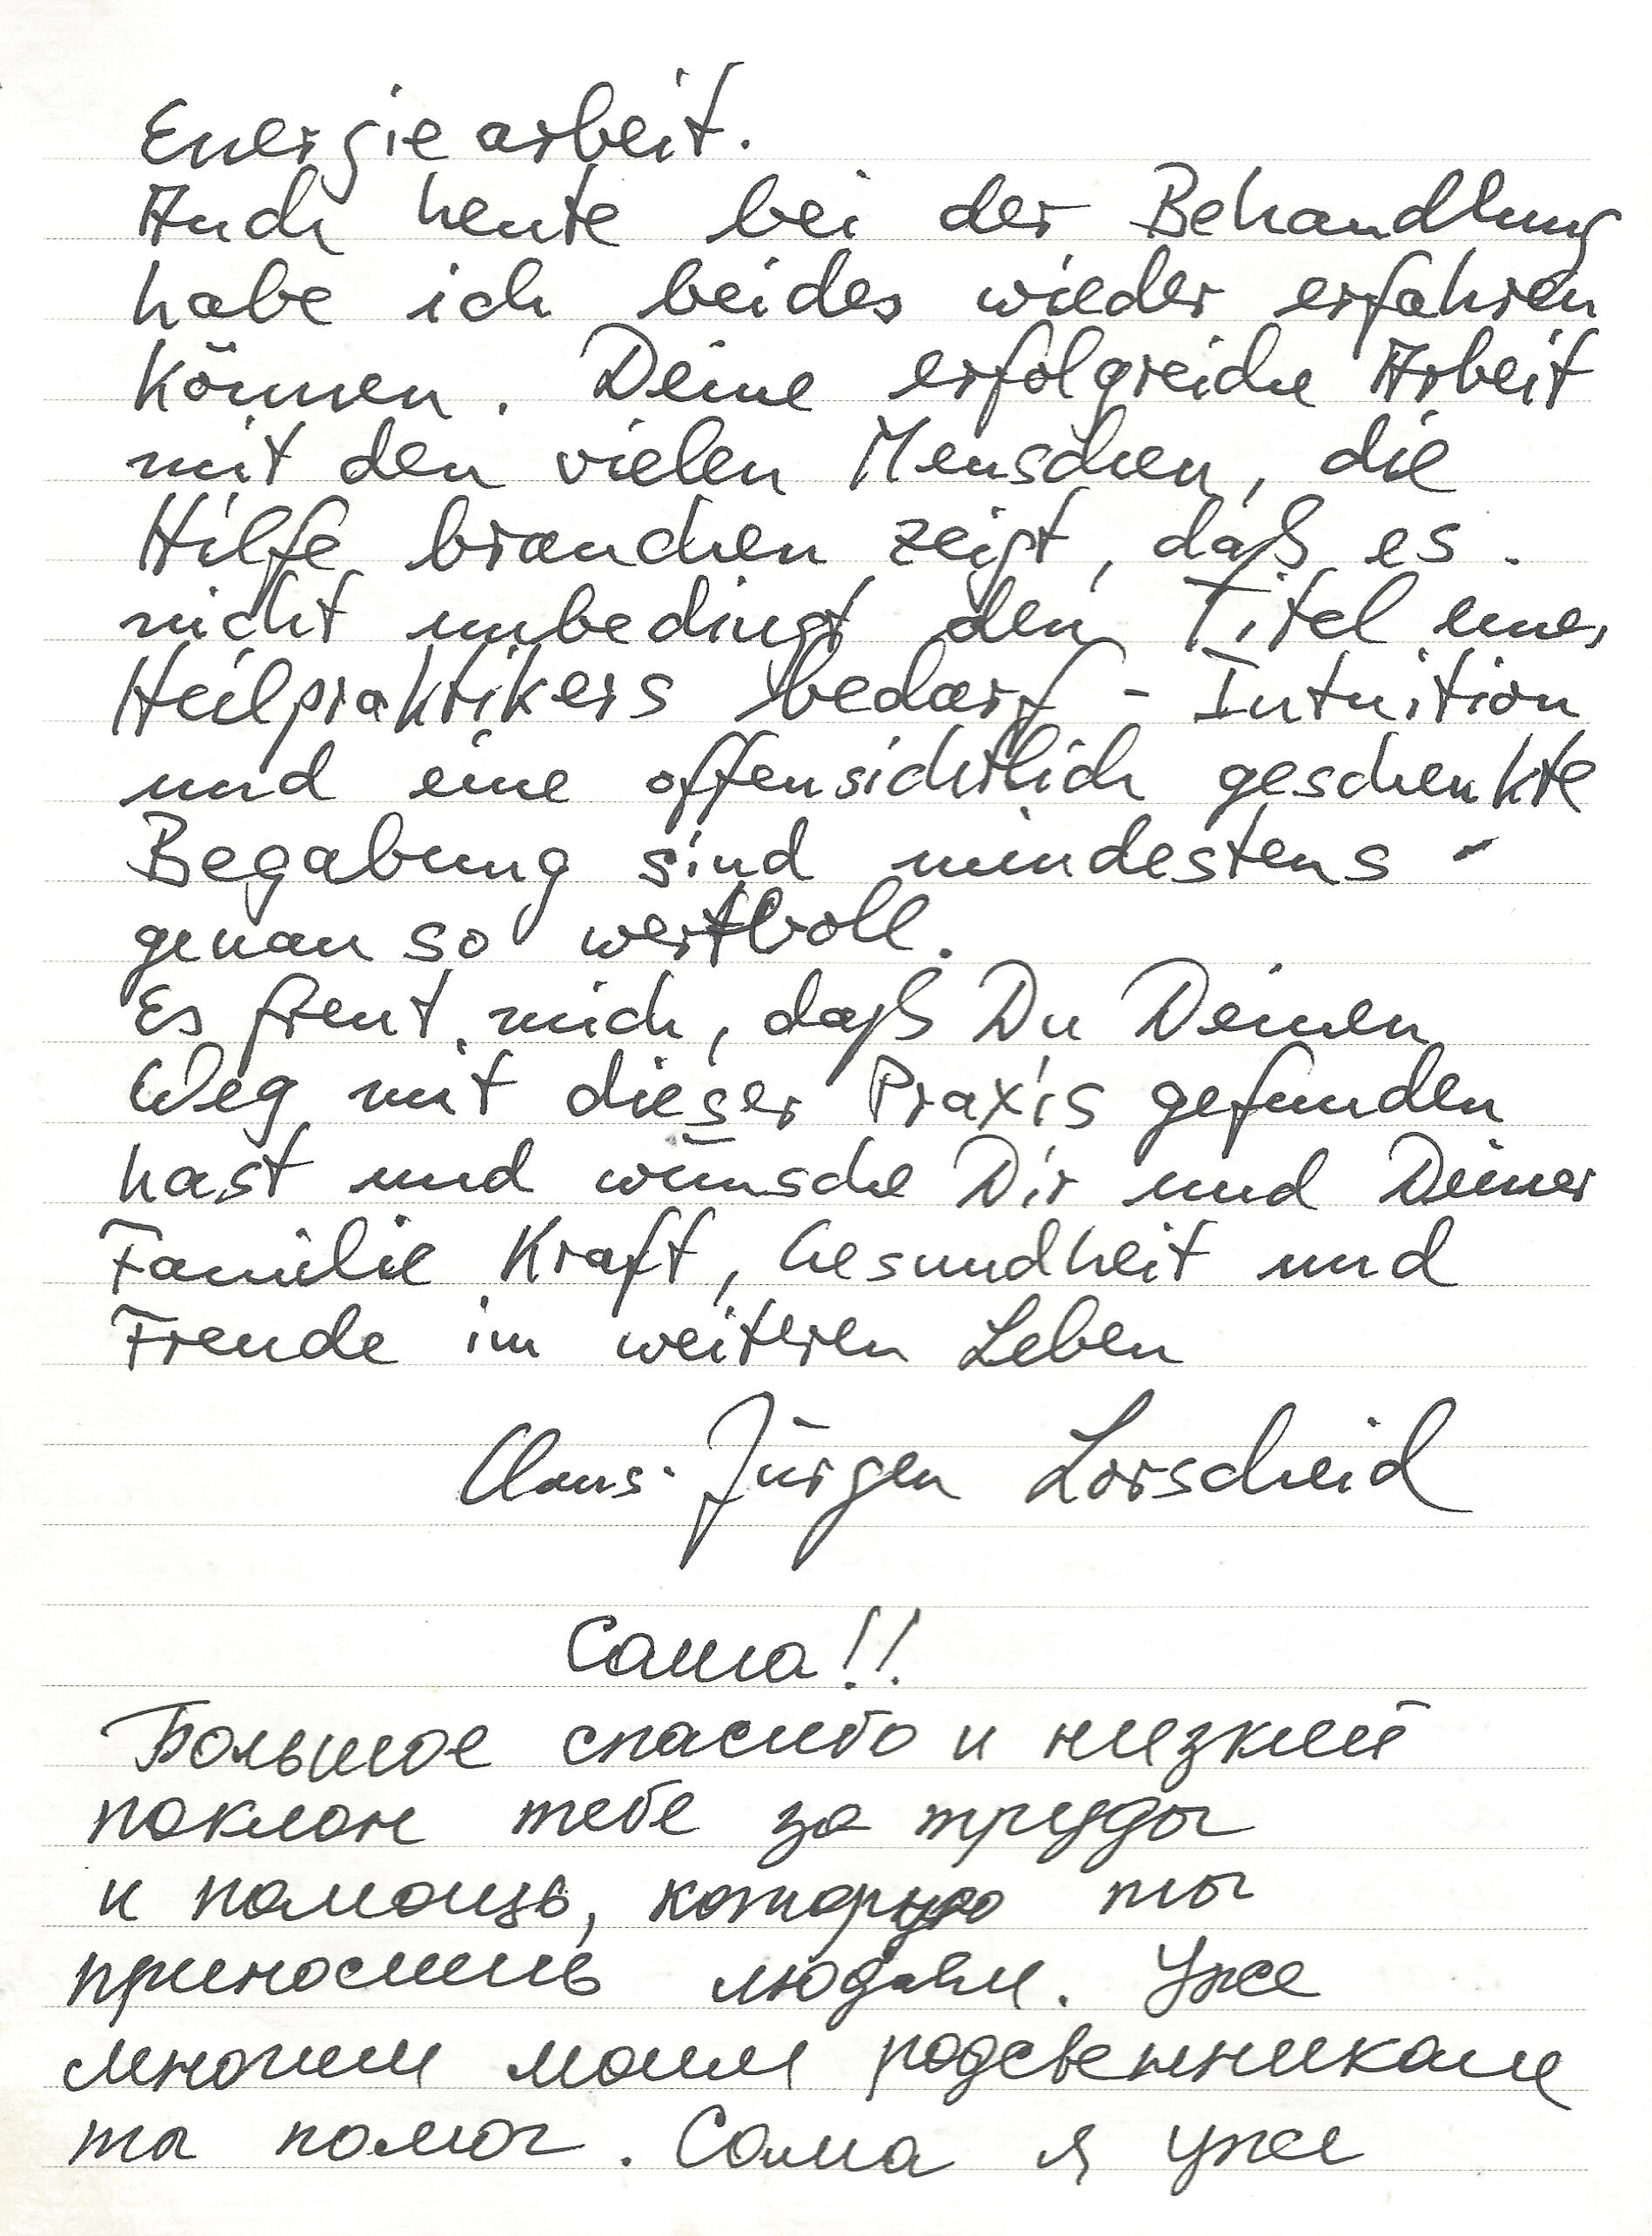 Energiearbeit.
Auch heute bei der Behandlung
habe ich beides wieder erfahren
können. Deine erfolgreiche Arbeit
mit den vielen Menschen, die
Hilfe brauchen zeigt, daß es
nicht unbedingt den Titel eines
Heilpraktikers bedarf - Intuition
und eine offensichtlich geschenkte
Begabung sind mindestens -
genau so wertvoll.
Es freut mich, daß Du Deinen
Weg mit dieser Praxis gefunden
hast und wünsche Dir und Deiner
Familie Kraft, Gesundheit und
Freude im weiteren Leben
Claus-Jürgen Lorscheid
Саша!!
Большое спасибо и низкий
поклон тебе за труды
и помощь, которую ты
приносишь людям. Уже
многим моим родственникам
ты помог. Сама я уже